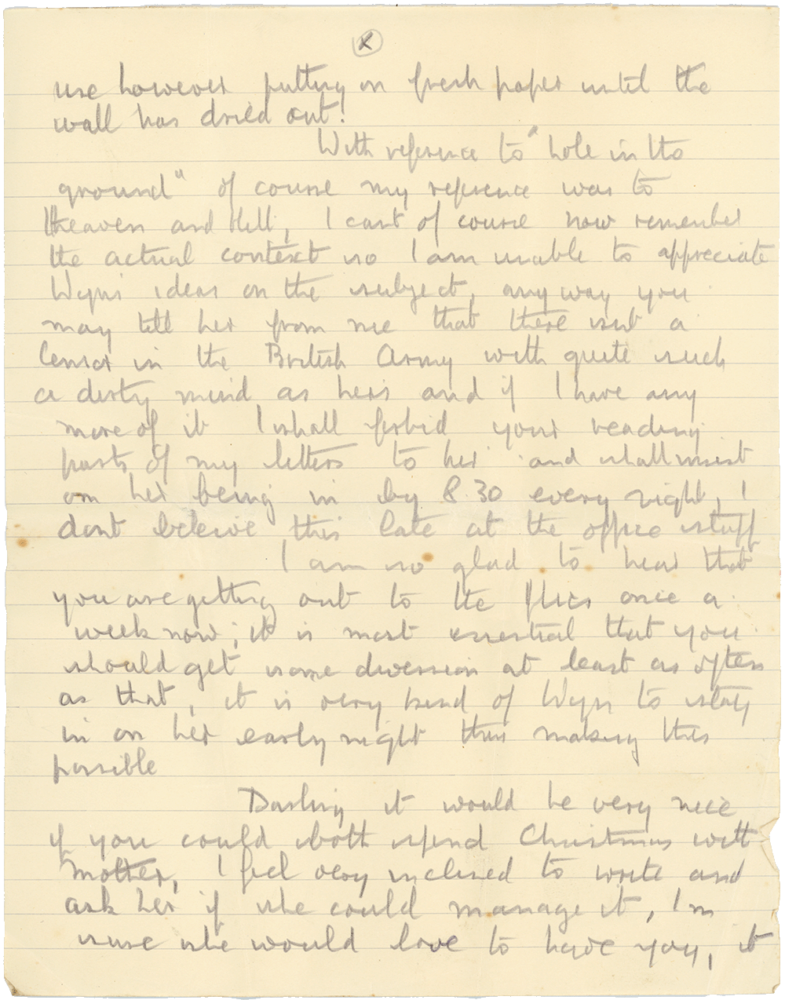 X
use however putting on fresh paper until the
wall has dried out!
With reference to "hole in the
ground" of course my reference was to
Heaven and Hell, I cant of course now remember
the actual context so I am unable to appreciate
Wyn's ideas on the subject, anyway you
may tell her from me that there isnt a
Censor in the British Army with quite such
a dirty mind as hers and if I have any
more of it I shall forbid your reading
parts of my letters to her and shall insist
on her being in by 8.30 every night, I
dont beleive this late at the office stuff
I am so glad to hear that
you are getting out to the flics once a
week now; it is most essential that you
should get some diversion at least as often
as that, it is very kind of Wyn to stay
in on her early night thus making this
possible
Darling it would be very nice
if you could both spend Christmas with
Mother, I feel very inclined to write and
ask her if she could manage it, I'm
sure she would love to have you, it